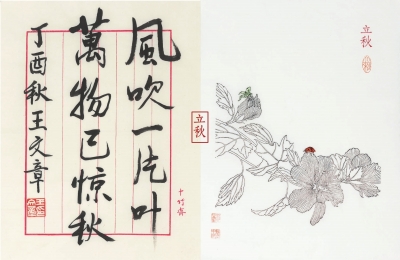 風吹一片叶
萬物已惊秋
丁酉秋王文章
十竹斋
立秋
立秋